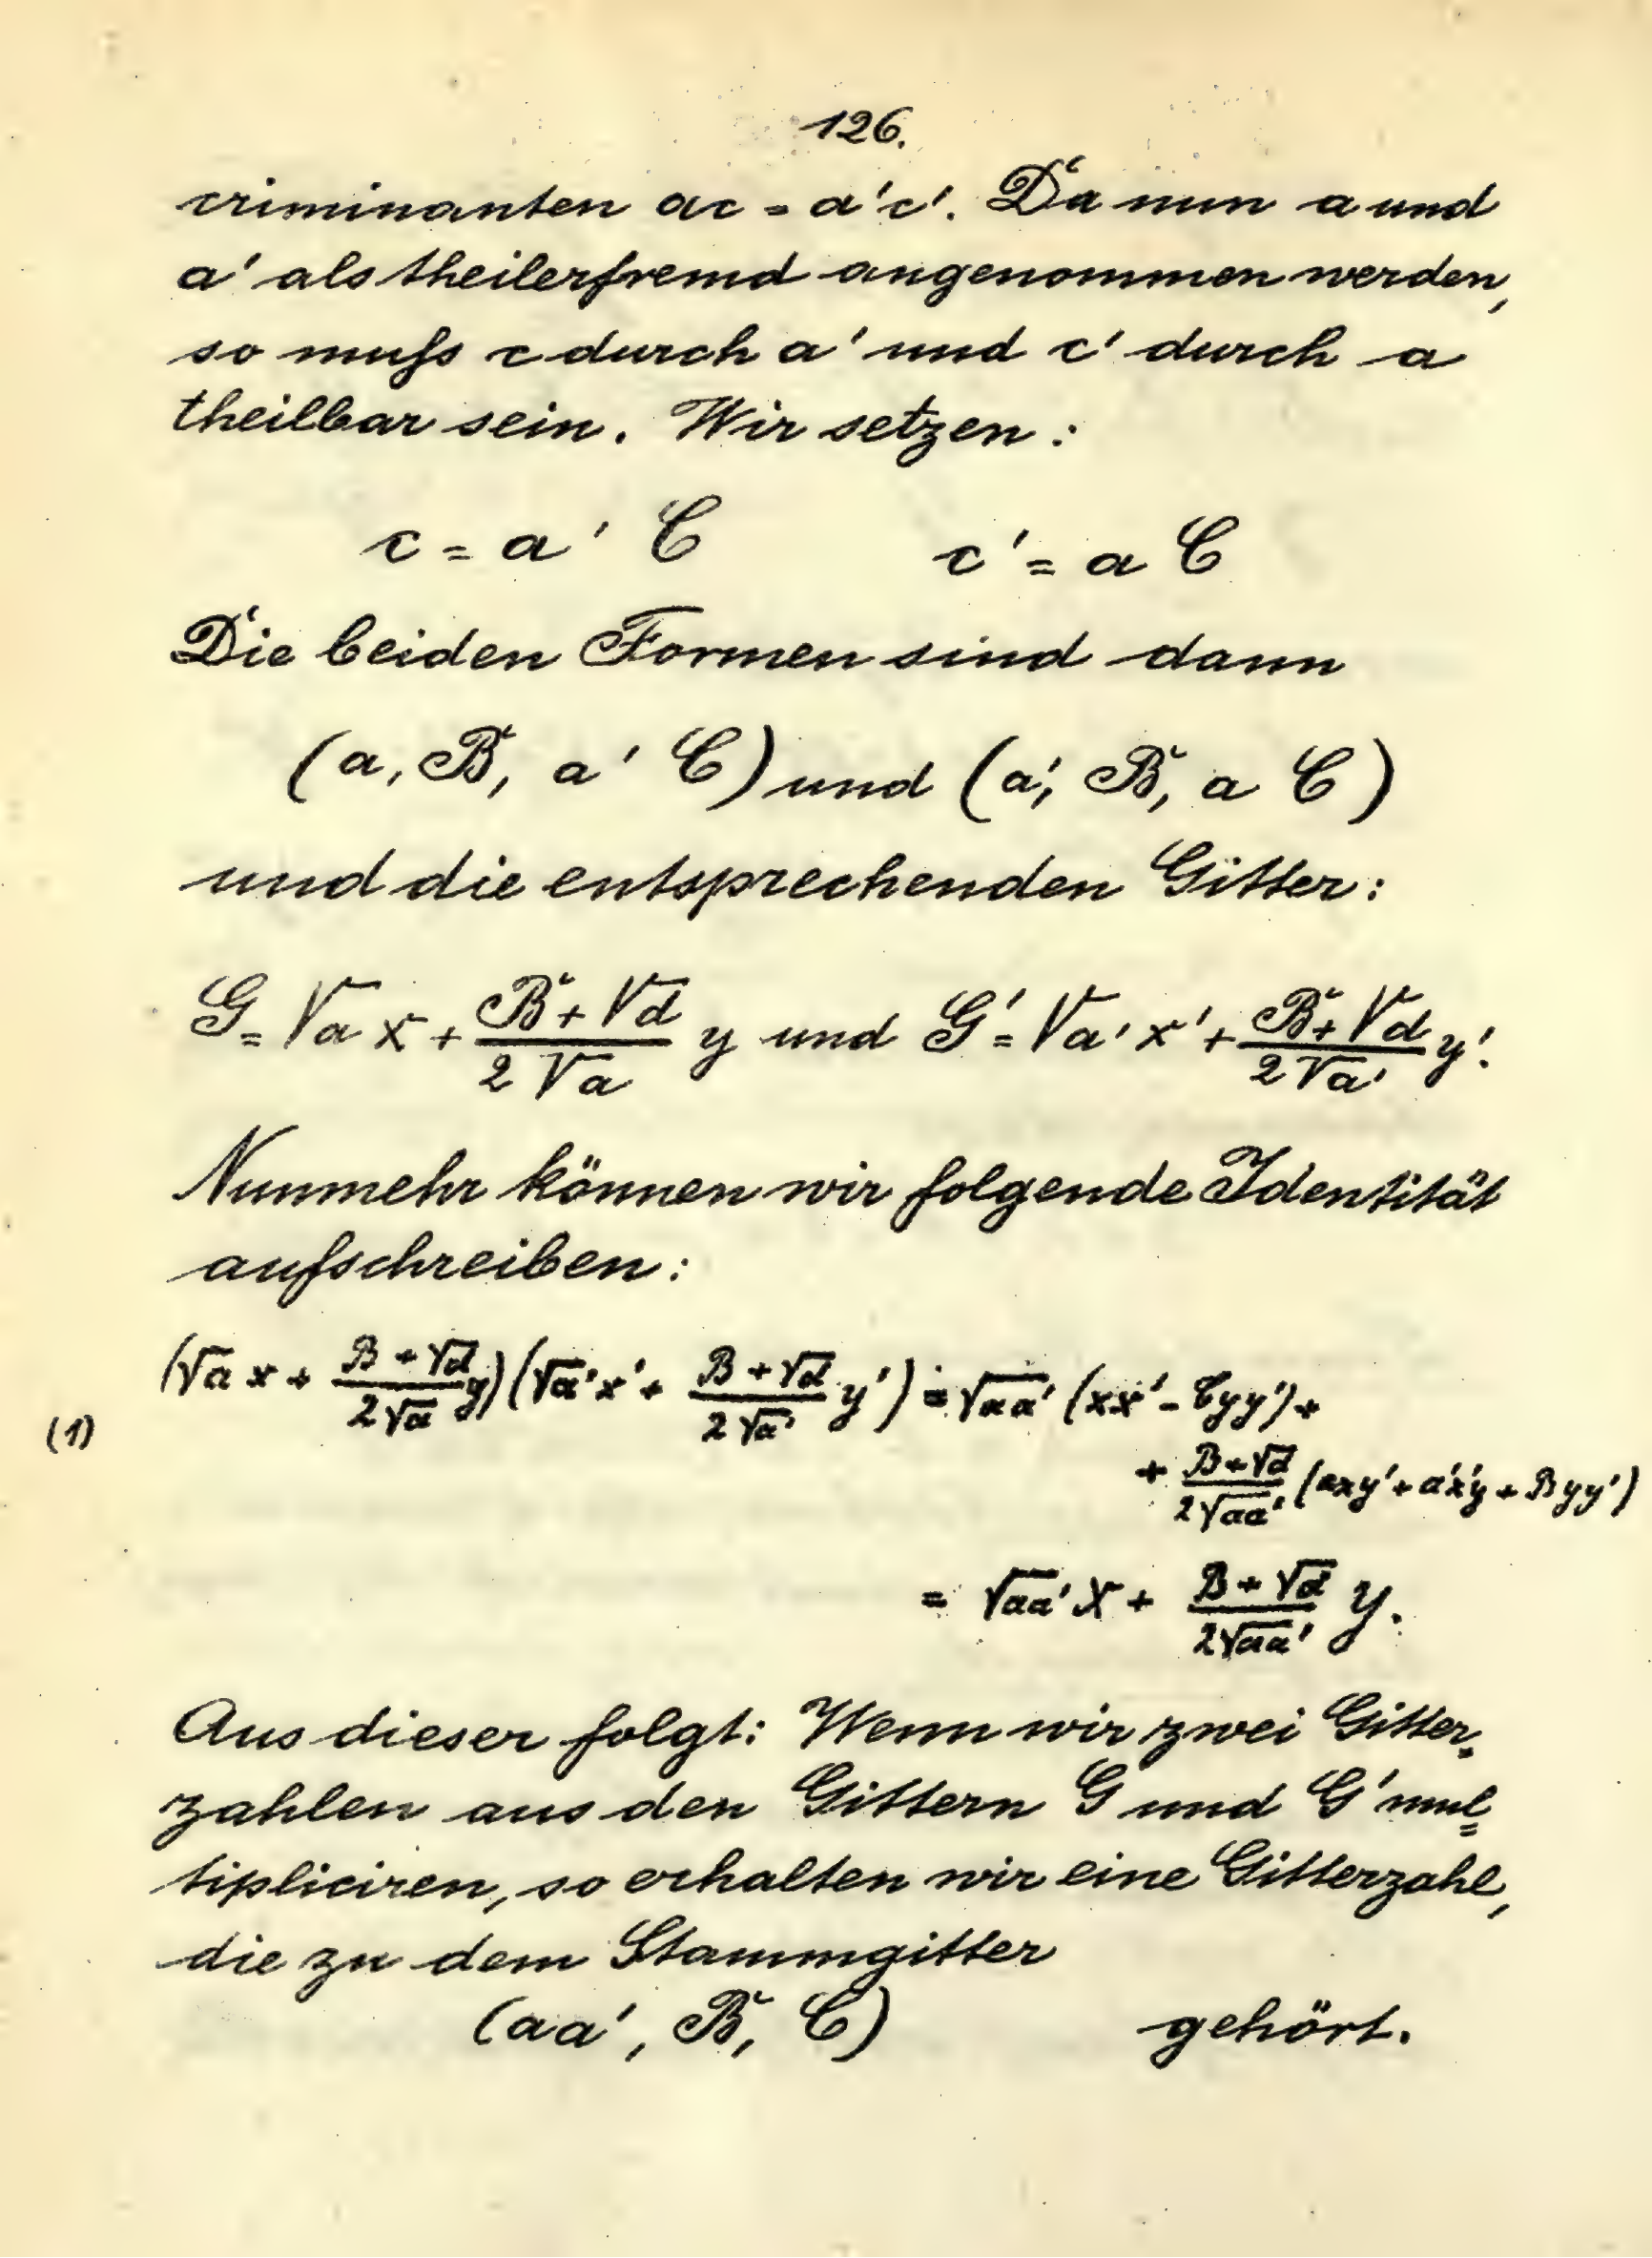 126.
criminanten ac = a'c'. Da nun a und
a' als theilerfremd angenommen werden,
so muſs c durch a' und c' durch a
theilbar sein. Wir setzen:
c = a' C    c' = a C
Die beiden Formen sind dann
(a, B, a' C) und (a', B, a C)
und die entsprechenden Gitter:
G = √a x + (B + √d)/(2√a) y und G' = √a' x' + (B + √d)/(2√a') y'.
Nunmehr können wir folgende Identität
aufschreiben:
(1) (√a x + (B + √d)/(2√a) y)(√a' x' + (B + √d)/(2√a') y') = √aa' (xx' - Cyy') +
+ (B + √d)/(2√aa') (axy' + a'x'y + Byy')
= √aa' X + (B + √d)/(2√aa') Y.
Aus dieser folgt: Wenn wir zwei Gitter-
zahlen aus den Gittern G und G' mul=
tipliciren, so erhalten wir eine Gitterzahl,
die zu dem Stammgitter
(aa', B, C) gehört.